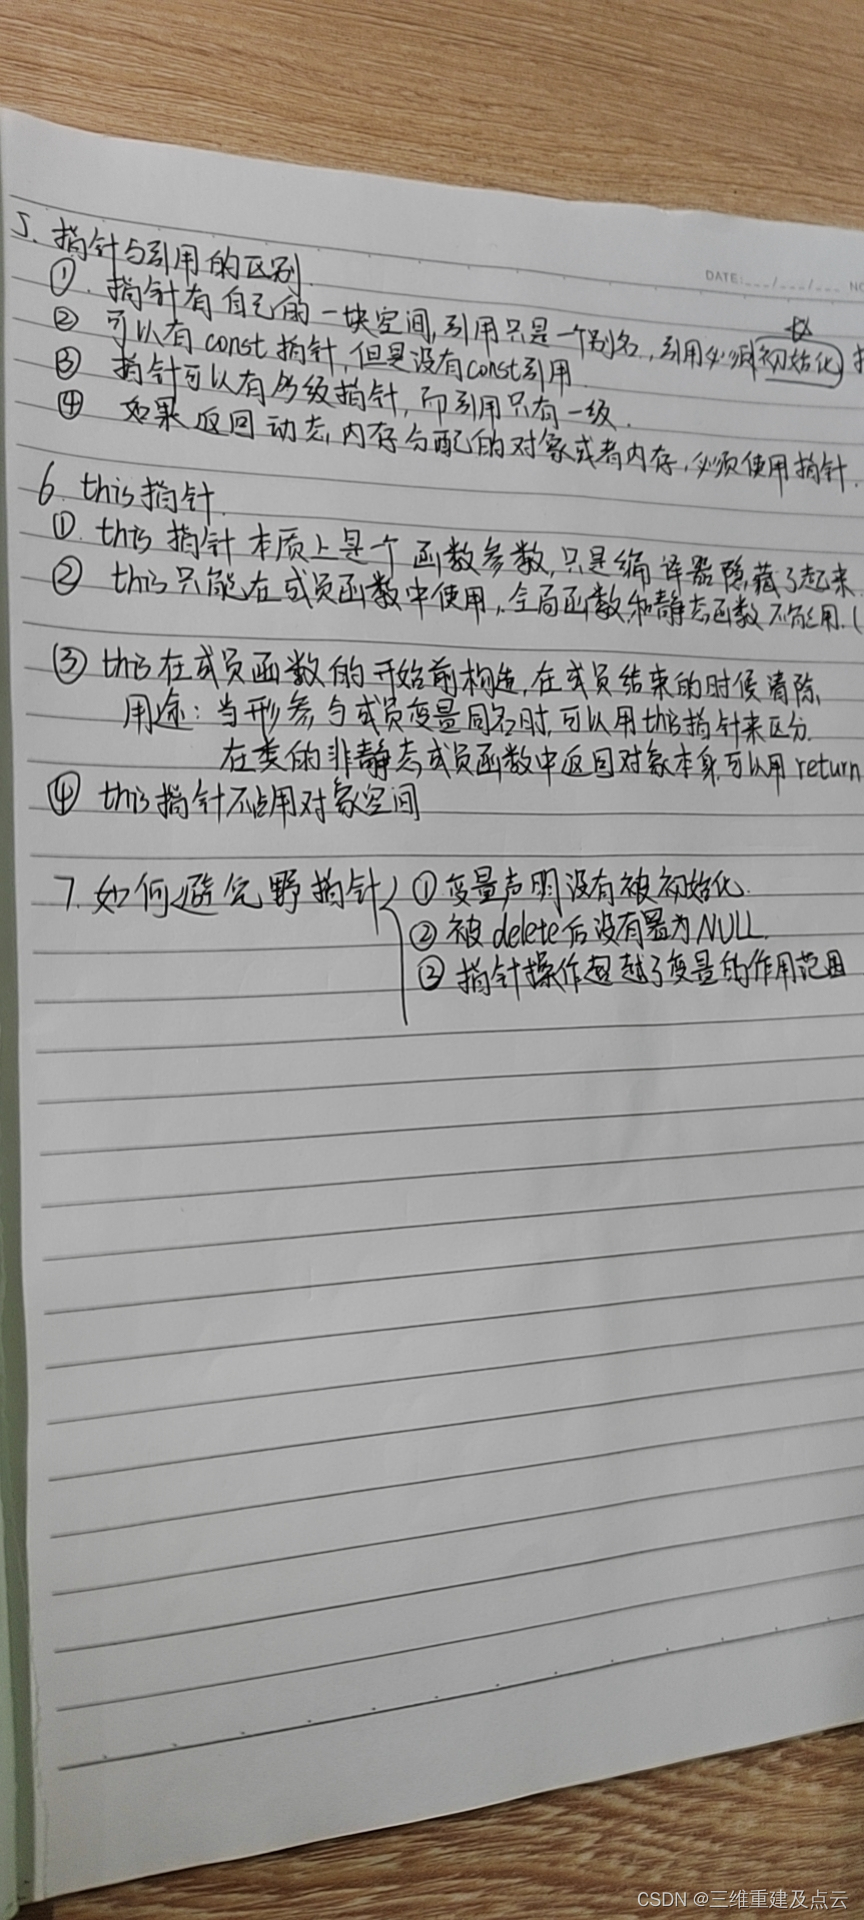 5. 指针与引用的区别.
①. 指针有自己的一块空间,引用只是一个别名,引用必须初始化
② 可以有const指针,但是没有const引用
③ 指针可以有多级指针,而引用只有一级.
④ 如果返回动态内存分配的对象或者内存,必须使用指针.
6. this指针.
①. this指针本质上是个函数参数,只是编译器隐藏了起来
② this只能在成员函数中使用,全局函数和静态函数不能用.(
③ this在成员函数的开始前构造,在成员结束的时候清除,
用途:当形参与成员变量同名时,可以用this指针来区分.
在类的非静态成员函数中返回对象本身,可以用return
④ this指针不占用对象空间
7. 如何避免野指针
① 变量声明没有被初始化.
② 被delete后没有置为NULL.
③ 指针操作超越了变量的作用范围
DATE:___/___/___ NO
CSDN @三维重建及点云